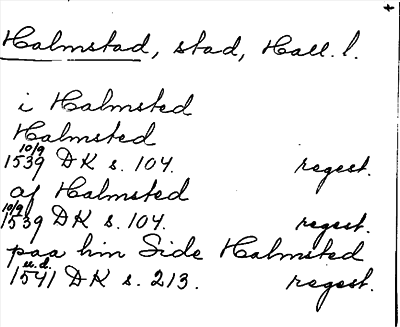 Halmstad, stad, Hall. l.
i Halmsted
Halmsted
1539 10/9 DK s. 104. regest.
af Halmsted
1539 10/9 DK s. 104. regest.
paa hin Side Halmsted
1541 u.d. DK s. 213. regest.